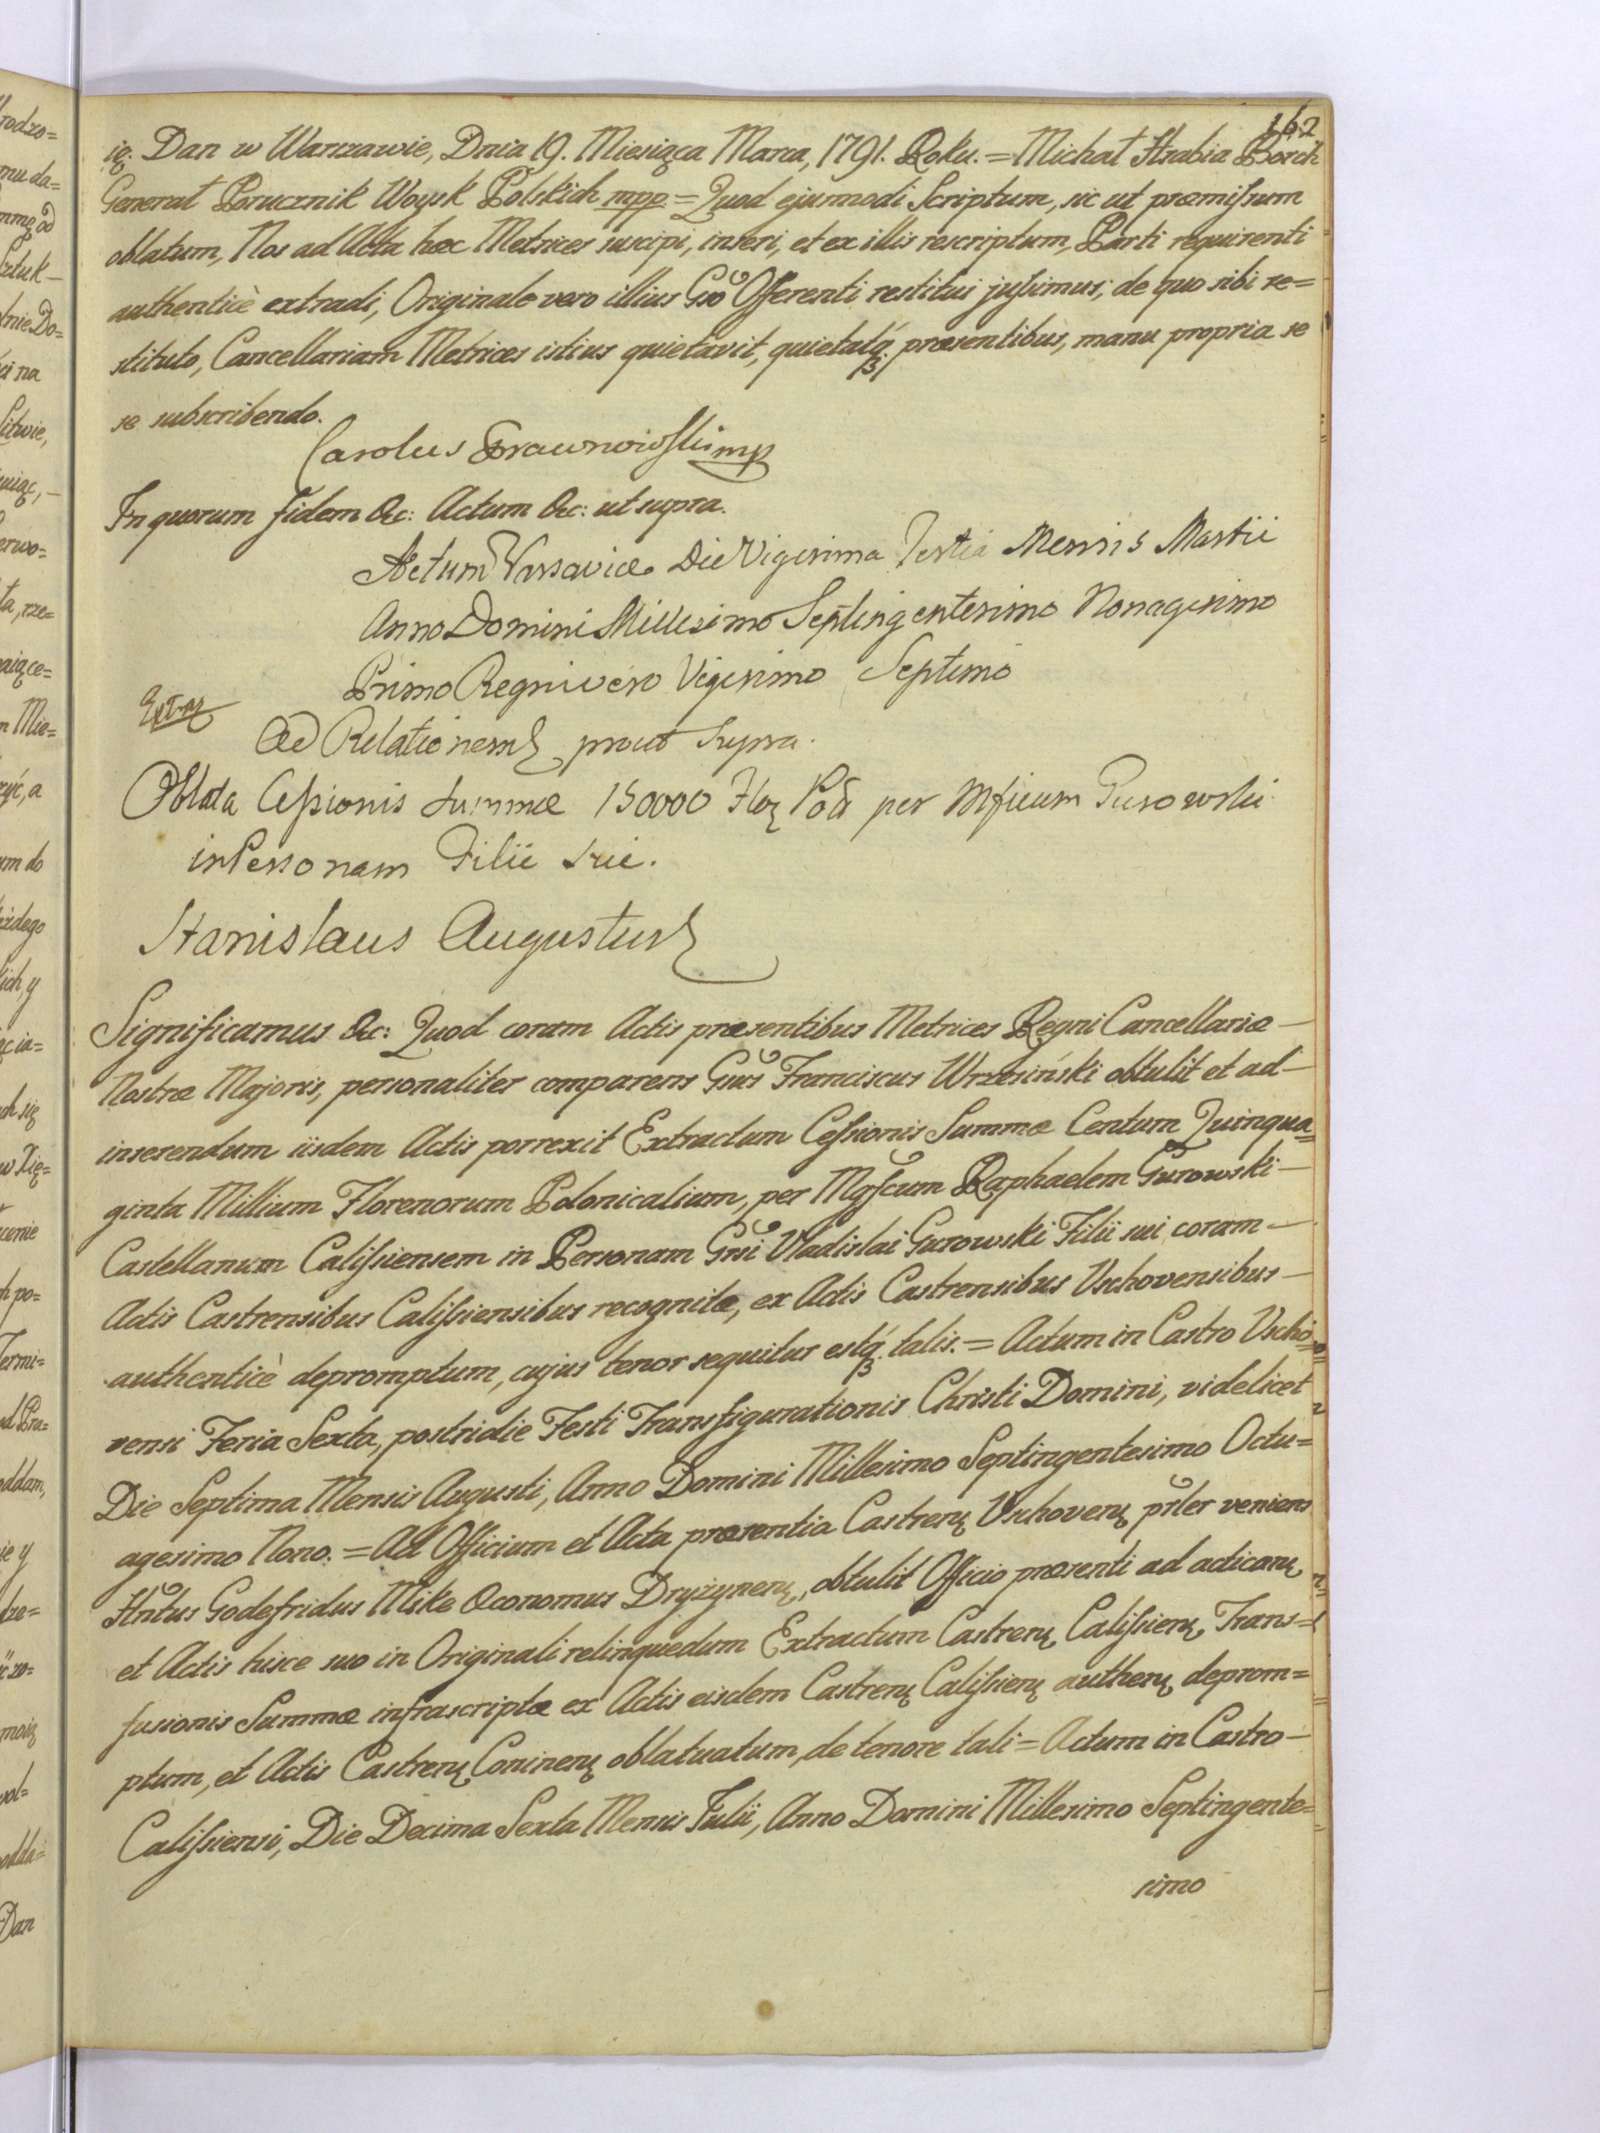 162
ię. Dan w Warszawie, Dnia 19. Miesiąca Marca, 1791. Roku. = Michał Hrabia Borch
Generał Porucznik Woysk Polskich mpp = Quod ejusmodi Scriptum, sic ut præmiſsum
oblatum, Nos ad Acta hæc Metrices suscipi, inseri, et ex illis rescriptum, Parti requirenti
authenticè extradi, Originale vero illius Gso Offerenti restitui juſsimus; de quo sibi re=
stituto, Cancellariam Metrices istius quietavit, quietatq́ præsentibus, manu propria se
se subscribendo.
Carolus mp
In quorum fidem &c: Actum &c: ut supra.
Actum Varsaviæ Die Vigesima Tertia Mensis Martii
Anno Domini Millesimo Septingentesimo Nonagesimo
Primo Regni vero Vigesimo Septimo
Ad Relationem prout Supra.
Oblata Ceſsionis Summæ 150000 Flor Pol per Mficum Gurowski
in Personam Filii sui.
Stanislaus Augustus
Significamus &c: Quod coram Actis præsentibus Metrices Regni Cancellariæ –
Nostræ Majoris, personaliter comparens Gsus Franciscus Wrzesiński obtulit et ad –
inserendum iisdem Actis porrexit Extractum Ceſsionis Summæ Centum Quinqua=
ginta Millium Florenorum Polonicalium, per Mgfcum Raphaelem Gurowski –
Castellanum Caliſsiensem in Personam Gsi Vladislai Gurowski Filii sui coram –
Actis Castrensibus Caliſsiensibus recognitæ, ex Actis Castrensibus Vschovensibus –
authenticè depromptum, cujus tenor sequitur estq́ talis. = Actum in Castro Vscho=
vensi Feria Sexta, postridie Festi Transfigurationis Christi Domini, videlicet
Die Septima Mensis Augusti, Anno Domini Millesimo Septingentesimo Octu=
agesimo Nono. = Ad Officium et Acta præsentia Castren. Vschoven. prler veniens
Hntus Godefridus Mike Œconomus Dryżynen., obtulit Officio præsenti ad actican.
et Actis hisce suo in Originali relinquedum Extractum Castren. Caliſsien. Trans=
fusionis Summæ infrascriptæ ex Actis eisdem Castren. Caliſsien. authen. deprom=
ptum, et Actis Castren. Coninen. oblatuatum, de tenore tali = Actum in Castro –
Caliſsiensi, Die Decima Sexta Mensis Julii, Anno Domini Millesimo Septingente=
simo